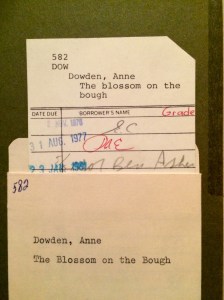 582
DOW
Dowden, Anne
The blossom on the
bough
DATE DUE
BORROWER'S NAME
Grade
1978
S.C
31 AUG. 1977
582
Dowden, Anne
The Blossom on the Bough